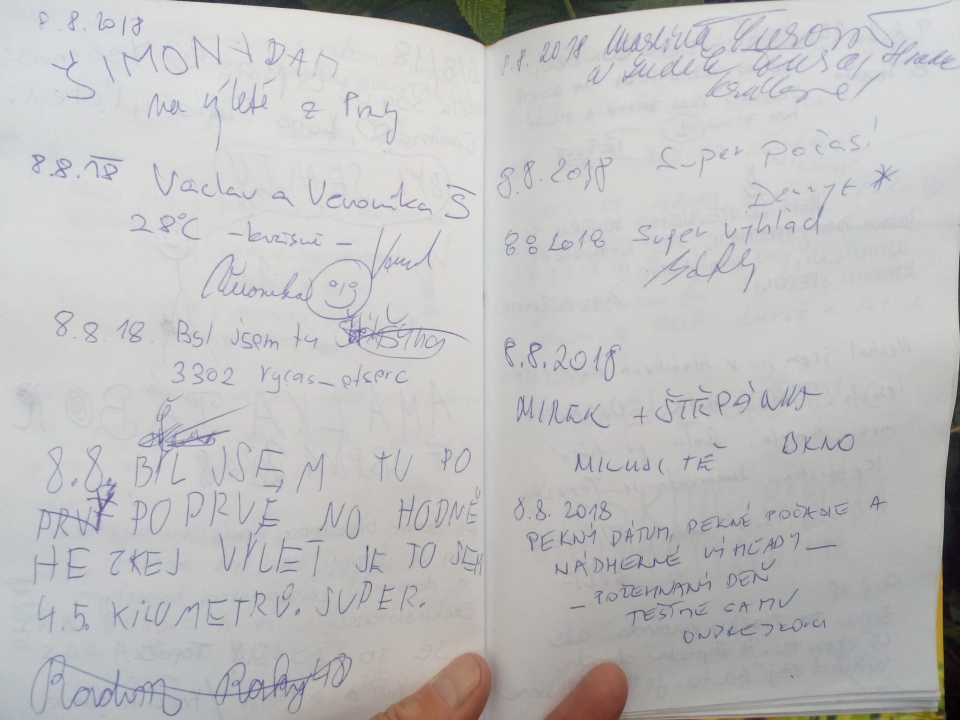 8.8.2018
ŠIMON + DAN
na výletě z Prahy
8.8.18 Václav a Veronika Š
28°C - krásně -
Veronika
8.8.18. Byl jsem tu
3302
8.8. BYL JSEM TU PO
POPRVÉ NO HODNĚ
HEZKEJ VÝLET JE TO SEM
4.5. KILOMETRŮ. SUPER.
Radim
8.8.2018
Hradec
Králové
8.8.2018 Super počasí
8.8.2018 Super výhled
8.8.2018
MIREK + ŠTĚPÁNKA
BRNO
MILUJI TĚ
8.8.2018
PEKNÝ DÁTUM, PEKNÉ POČASIE A
NÁDHERNÉ VÝHĽADY —
— POŽEHNANÝ DEŇ
TEŠÍME SA MY
ONDREJKOVCI